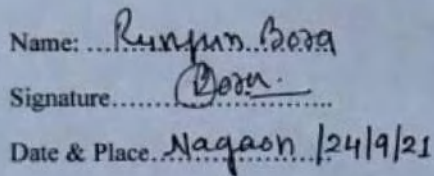 Name: ... Runjun Bora
Signature........ Bora. ........
Date & Place. Nagaon /24/9/21